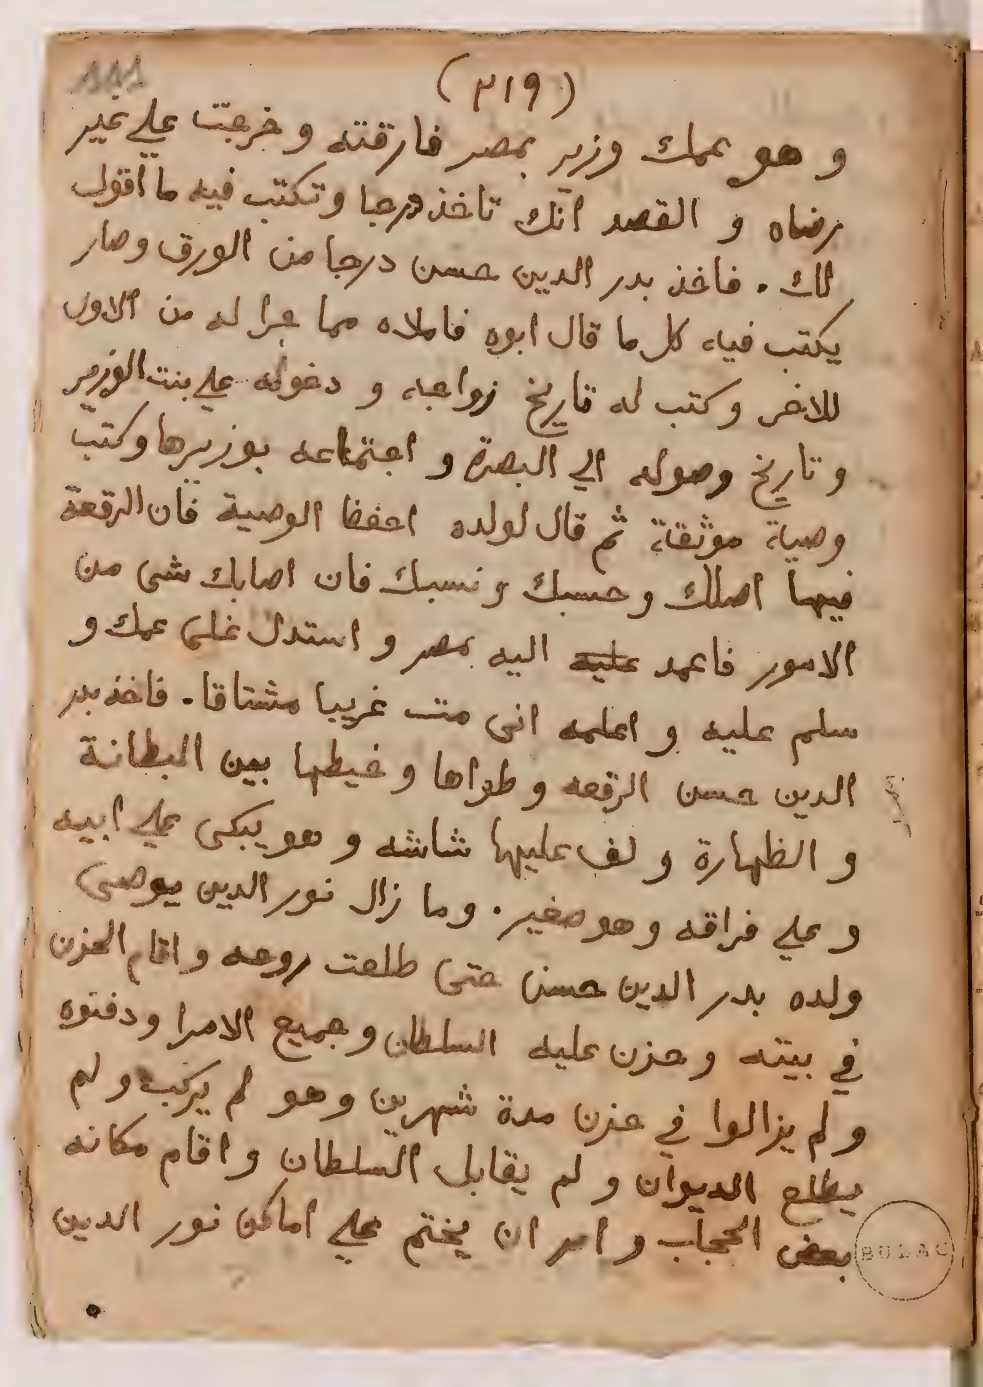 (٢١٩)
و هو عمك وزير بمصر فارقته و خرجت علي غير
رضاه و القصد انّك تاخذ درجا وتكتب فيه ما اقول
لك . فاخذ بدر الدين حسن درجا من الورق وصار
يكتب فيه كل ما قال ابوه فاملاه مما جرا له من الاول
للاخر وكتب له تاريخ زواجه و دخوله علي بنت الوزير
و تاريخ وصوله الي البصرة و اجتماعه بوزيرها وكتب
وصية موثقة ثم قال لولده احفظ الوصية فان الرقعة
فيها اصلك وحسبك ونسبك فان اصابك شى من
الامور فاعمد عليه اليه بمصر و استدل على عمك و
سلم عليه و اعلمه انى مت غريبا مشتاقا . فاخذ بدر
الدين حسن الرقعه و طواها و خيطها بين البطانة
و الظهارة و لف عليها شاشه و هو يبكى علي ابيه
و علي فراقه وهو صغير . وما زال نور الدين يوصى
ولده بدر الدين حسن حتى طلعت روحه واقام الحزن
في بيته وحزن عليه السلطان وجميع الامرا ودفنوه
و لم يزالوا في حزن مدة شهرين وهو لم يركب و لم
يطلع الديوان و لم يقابل السلطان واقام مكانه
بعض الحجاب و امر ان يختم علي اماكن نور الدين
BULAC